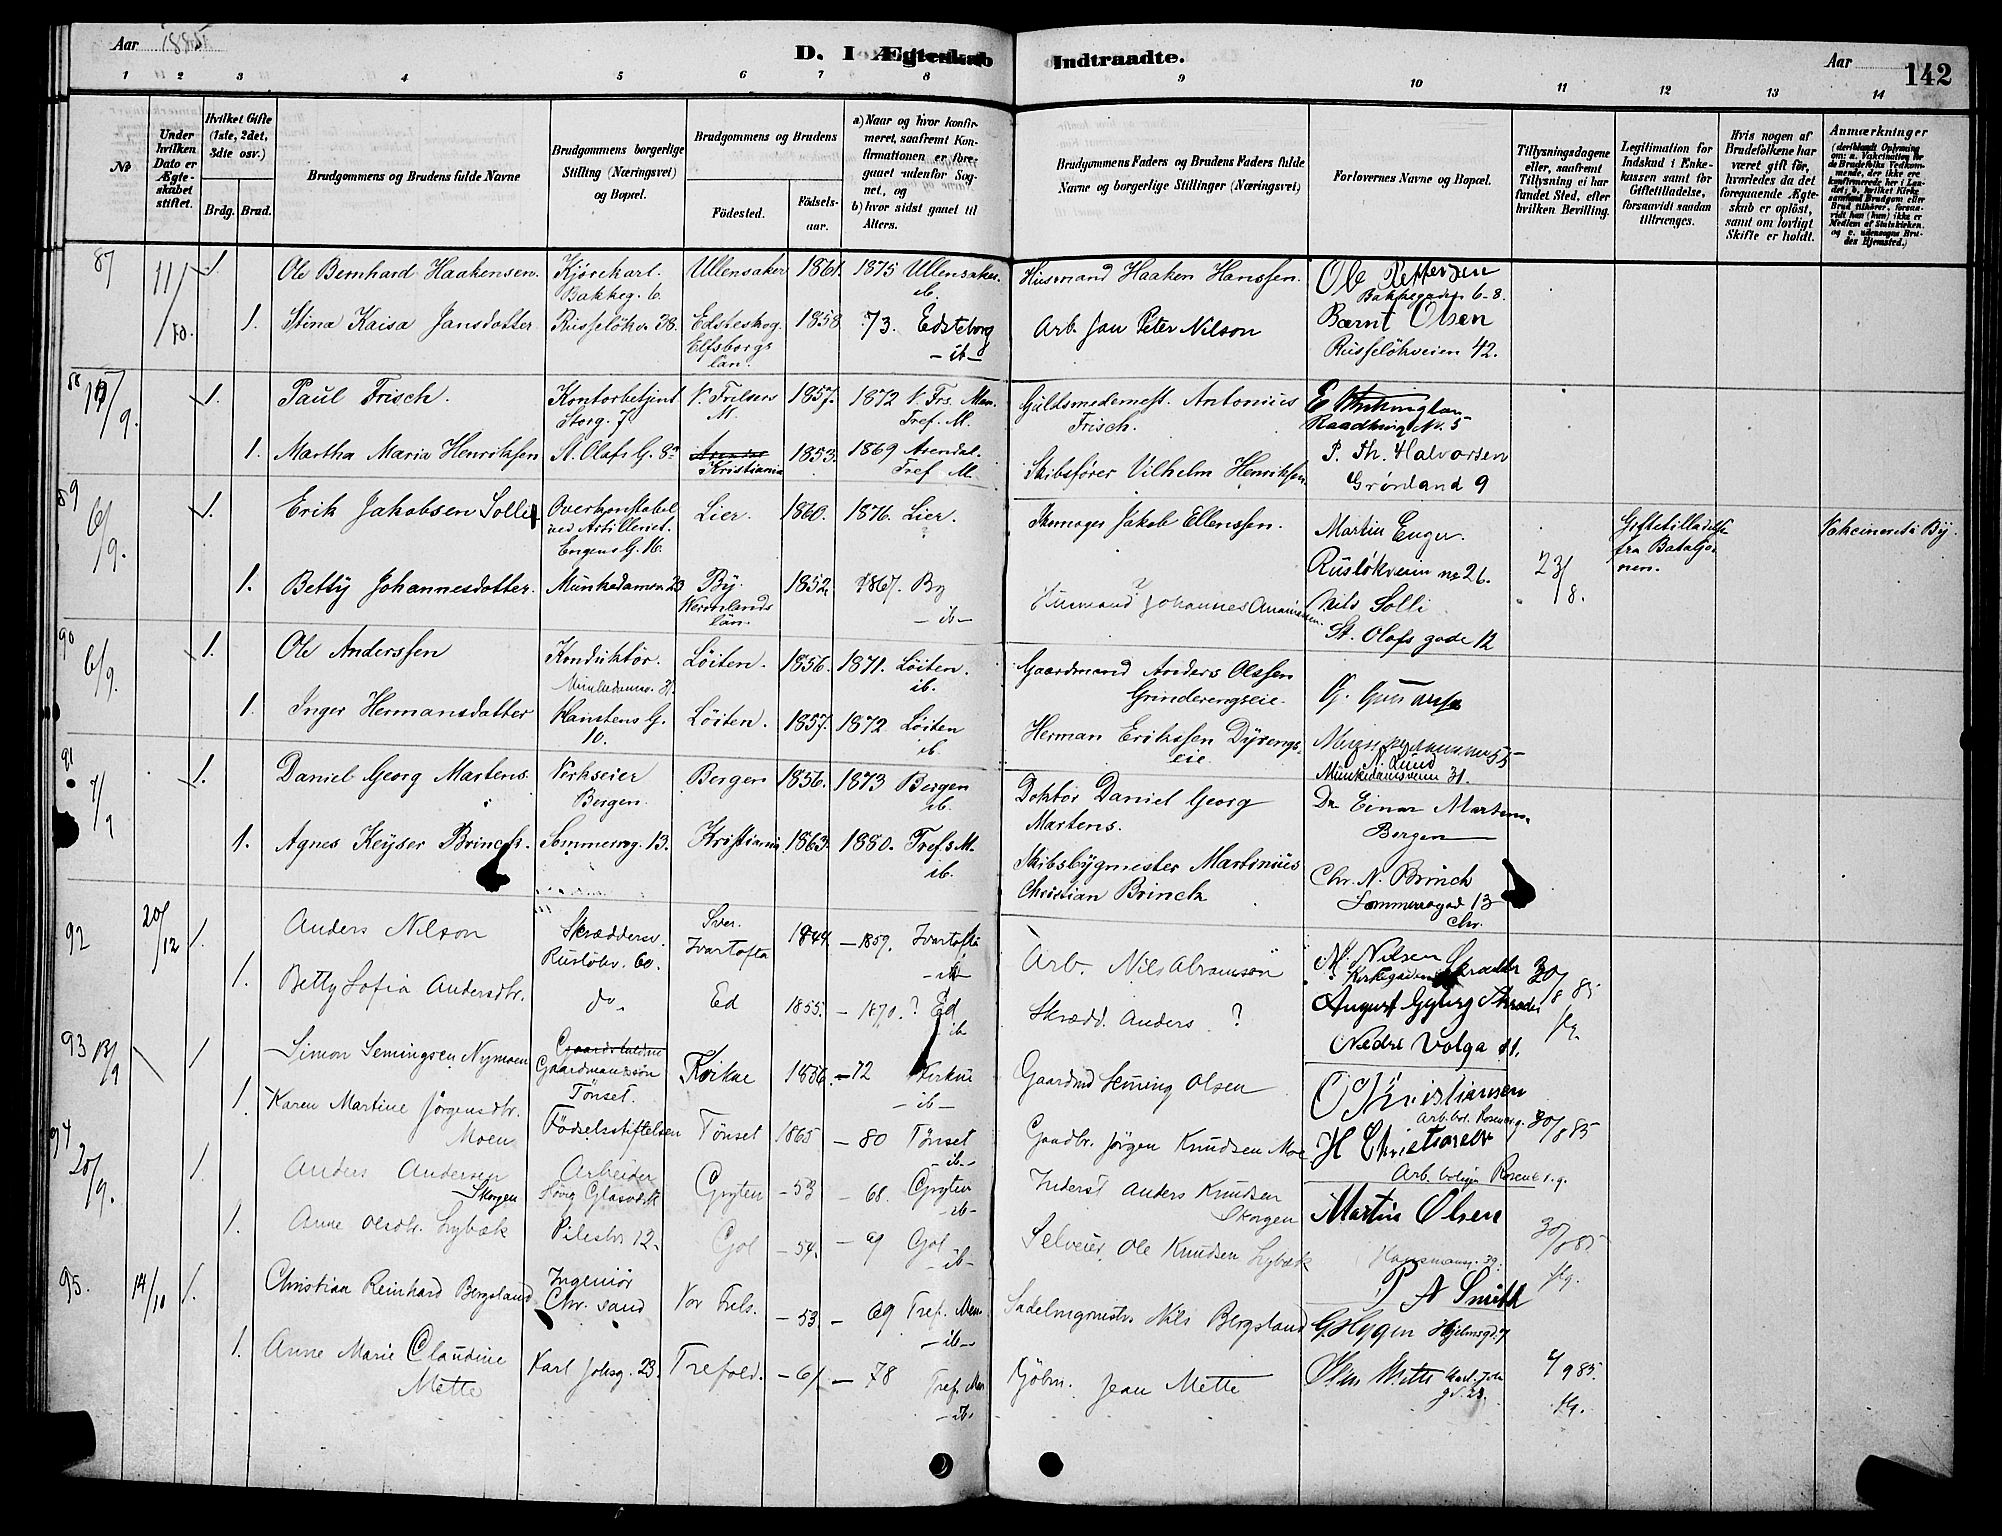 Aar 1885
D. I Ægteskab Indtraadte.
Aar
142
1 2 3 4 5 6 7 8 9 10 11 12 13 14
№
Under hvilken Dato er Ægteskabet stiftet.
Hvilket Gifte (1ste, 2det, 3dte osv.)
Brdg. Brud.
Brudgommens og Brudens fulde Navne
Brudgommens borgerlige Stilling (Næringsvei) og Bopæl.
Brudgommens og Brudens
Fødested.
Fødselsaar.
a) Naar og hvor konfirmeret, saafremt Konfirmationen er foregaaet udenfor Sognet, og
b) hvor sidst gaaet til Alters.
Brudgommens Faders og Brudens Faders fulde Navne og borgerlige Stillinger (Næringsvei)
Forlovernes Navne og Bopæl.
Tillysningsdagene eller, saafremt Tillysning ei har fundet Sted, efter hvilken Bevilling.
Legitimation for Indskud i Enkekassen samt for Giftetilladelse, forsaavidt saadan tiltrænges.
Hvis nogen af Brudefolkene har været gift før, hvorledes da det foregaaende Ægteskab er opløst, samt om lovligt Skifte er holdt.
Anmærkninger
87 11/10. 1. Ole Bernhard Haakensen. Kjørekarl. Bakkeg. 6. Ullensaker 1861 1875 Ullensaker. ib. Husmand Haaken Hanssen. Ole Pettersen Bakkegaden 6-8.
1. Stina Kaisa Jansdotter Russeløkv. 38. Edsteskog Elfsborgs län. 1858 73. Edsteborg - ib - Arb. Jan Peter Nilson Bærnt Olsen Russeløkveien 42.
88 /9. 1. Paul Frisch. Kontorbetjent Storg. 7 V. Frelsers M. 1857. 1872 V. Frs. Men. Tref. M. Guldsmedemest. Antonius Frisch. Raadhusg. N. 5
1. Martha Maria Henriksen St. Olafs G. 8 Kristiania 1853. 1869 Arendal. Tref. M. Skibsfører Vilhelm Henriksen P. Th. Halvorsen Grønland 9
89 6/9. 1. Erik Jakobsen Solli Overkonstabel ved Artilleriet. Engens G. 16. Lier. 1860. 1876. Lier. Skomager Jakob Ellenssen. Martin Enger. Rusløkveien no 26. 23/8. Giftetilladelse fra Bataljonen. Vakcinerede By.
1. Betty Johannesdotter. Munkedamsv 23 By. Vermlands län. 1852. 1867. By - ib - Husmand Johannes Nils Solli St. Olafs gade 12
90 6/9. 1. Ole Anderssen Konduktør. Munkedamsv. 31. Løiten. 1856. 1871. Løiten. ib. Gaardmand Anders Olssen Grinderengseie.
1. Inger Hermansdatter Hanstens G. 10. Løiten. 1857. 1872 Løiten ib. Herman Erikssen Dyrengseie Lund Munkedamsveien 31.
91 4/9 1. Daniel Georg Martens. Verkseier Bergen. Bergen 1856. 1873 Bergen ib. Doktor Daniel Georg Martens. Dr. Einar Martens. Bergen
1. Agnes Keyser Brinch. Sommerrog. 13. Kristiania 1863. 1880. Tref. M. ib. Skibsbygmester Martinius Christian Brinch Chr. N. Brinch Sommerrogad 13 Chr.
92 20/12 1. Anders Nilson Skræddersv. Rusløkv. 60. Sver. Hvartofta 1844. - 1859. Hvartofta - ib - Arb. Nils Abramson N. Nilsen Kirkegaden Skrædder 30/8 85
1. Betty Sofia Andersdtr. do. Ed 1855. - 1870. ? Ed ib Skrædd. Anders ? August Gyberg Skrædder Nedre Volga 11. fg.
93 13/9 1 Simon Semingsen Nymoen Gaardmandssøn Tönset. Kvikne 1856. - 72 Kvikne - ib - Gaardmd Seming Olsen O Kristiansen Arb.bol. Rosenbrg.
1. Karen Martine Jörgensdtr. Moen Födselsstiftelsen Tönset 1865 - 80 Tönset - ib - Gaadbr. Jörgen Knudsen Moe H Christiansen Arb. boliger Rosenb.g. 30/8 85
94 20/9. 1. Anders Andersen Skorgen Arbeider Høvig Glasværk Gryten - 53 - 68. Gryten - ib - Inderst Anders Knudsen Skorgen Martin Olsen
1. Anne Olsdtr. Lybæk Pilestr. 12. Gol - 54. - 69 Gol - ib - Selveier Ole Knudsen Lybæk Hausmansg. 39. 30/8 85 fg.
95. 14/10 1. Christian Reinhard Bergsland Ingeniør Chr. sand Vor Frels. - 53 - 69 Tref. Men - ib - Sadelmgmestr. Nils Bergsland P A Smith G Hygen Hjelmsgd. 7
1. Anne Marie Claudine Mette Karl Johsg. 23. Trefold. - 61 - 78 Tref. Men - ib. Kjöbm. Jean Mette Mette Karl Joh gd. 23. 4 9 85. fg.